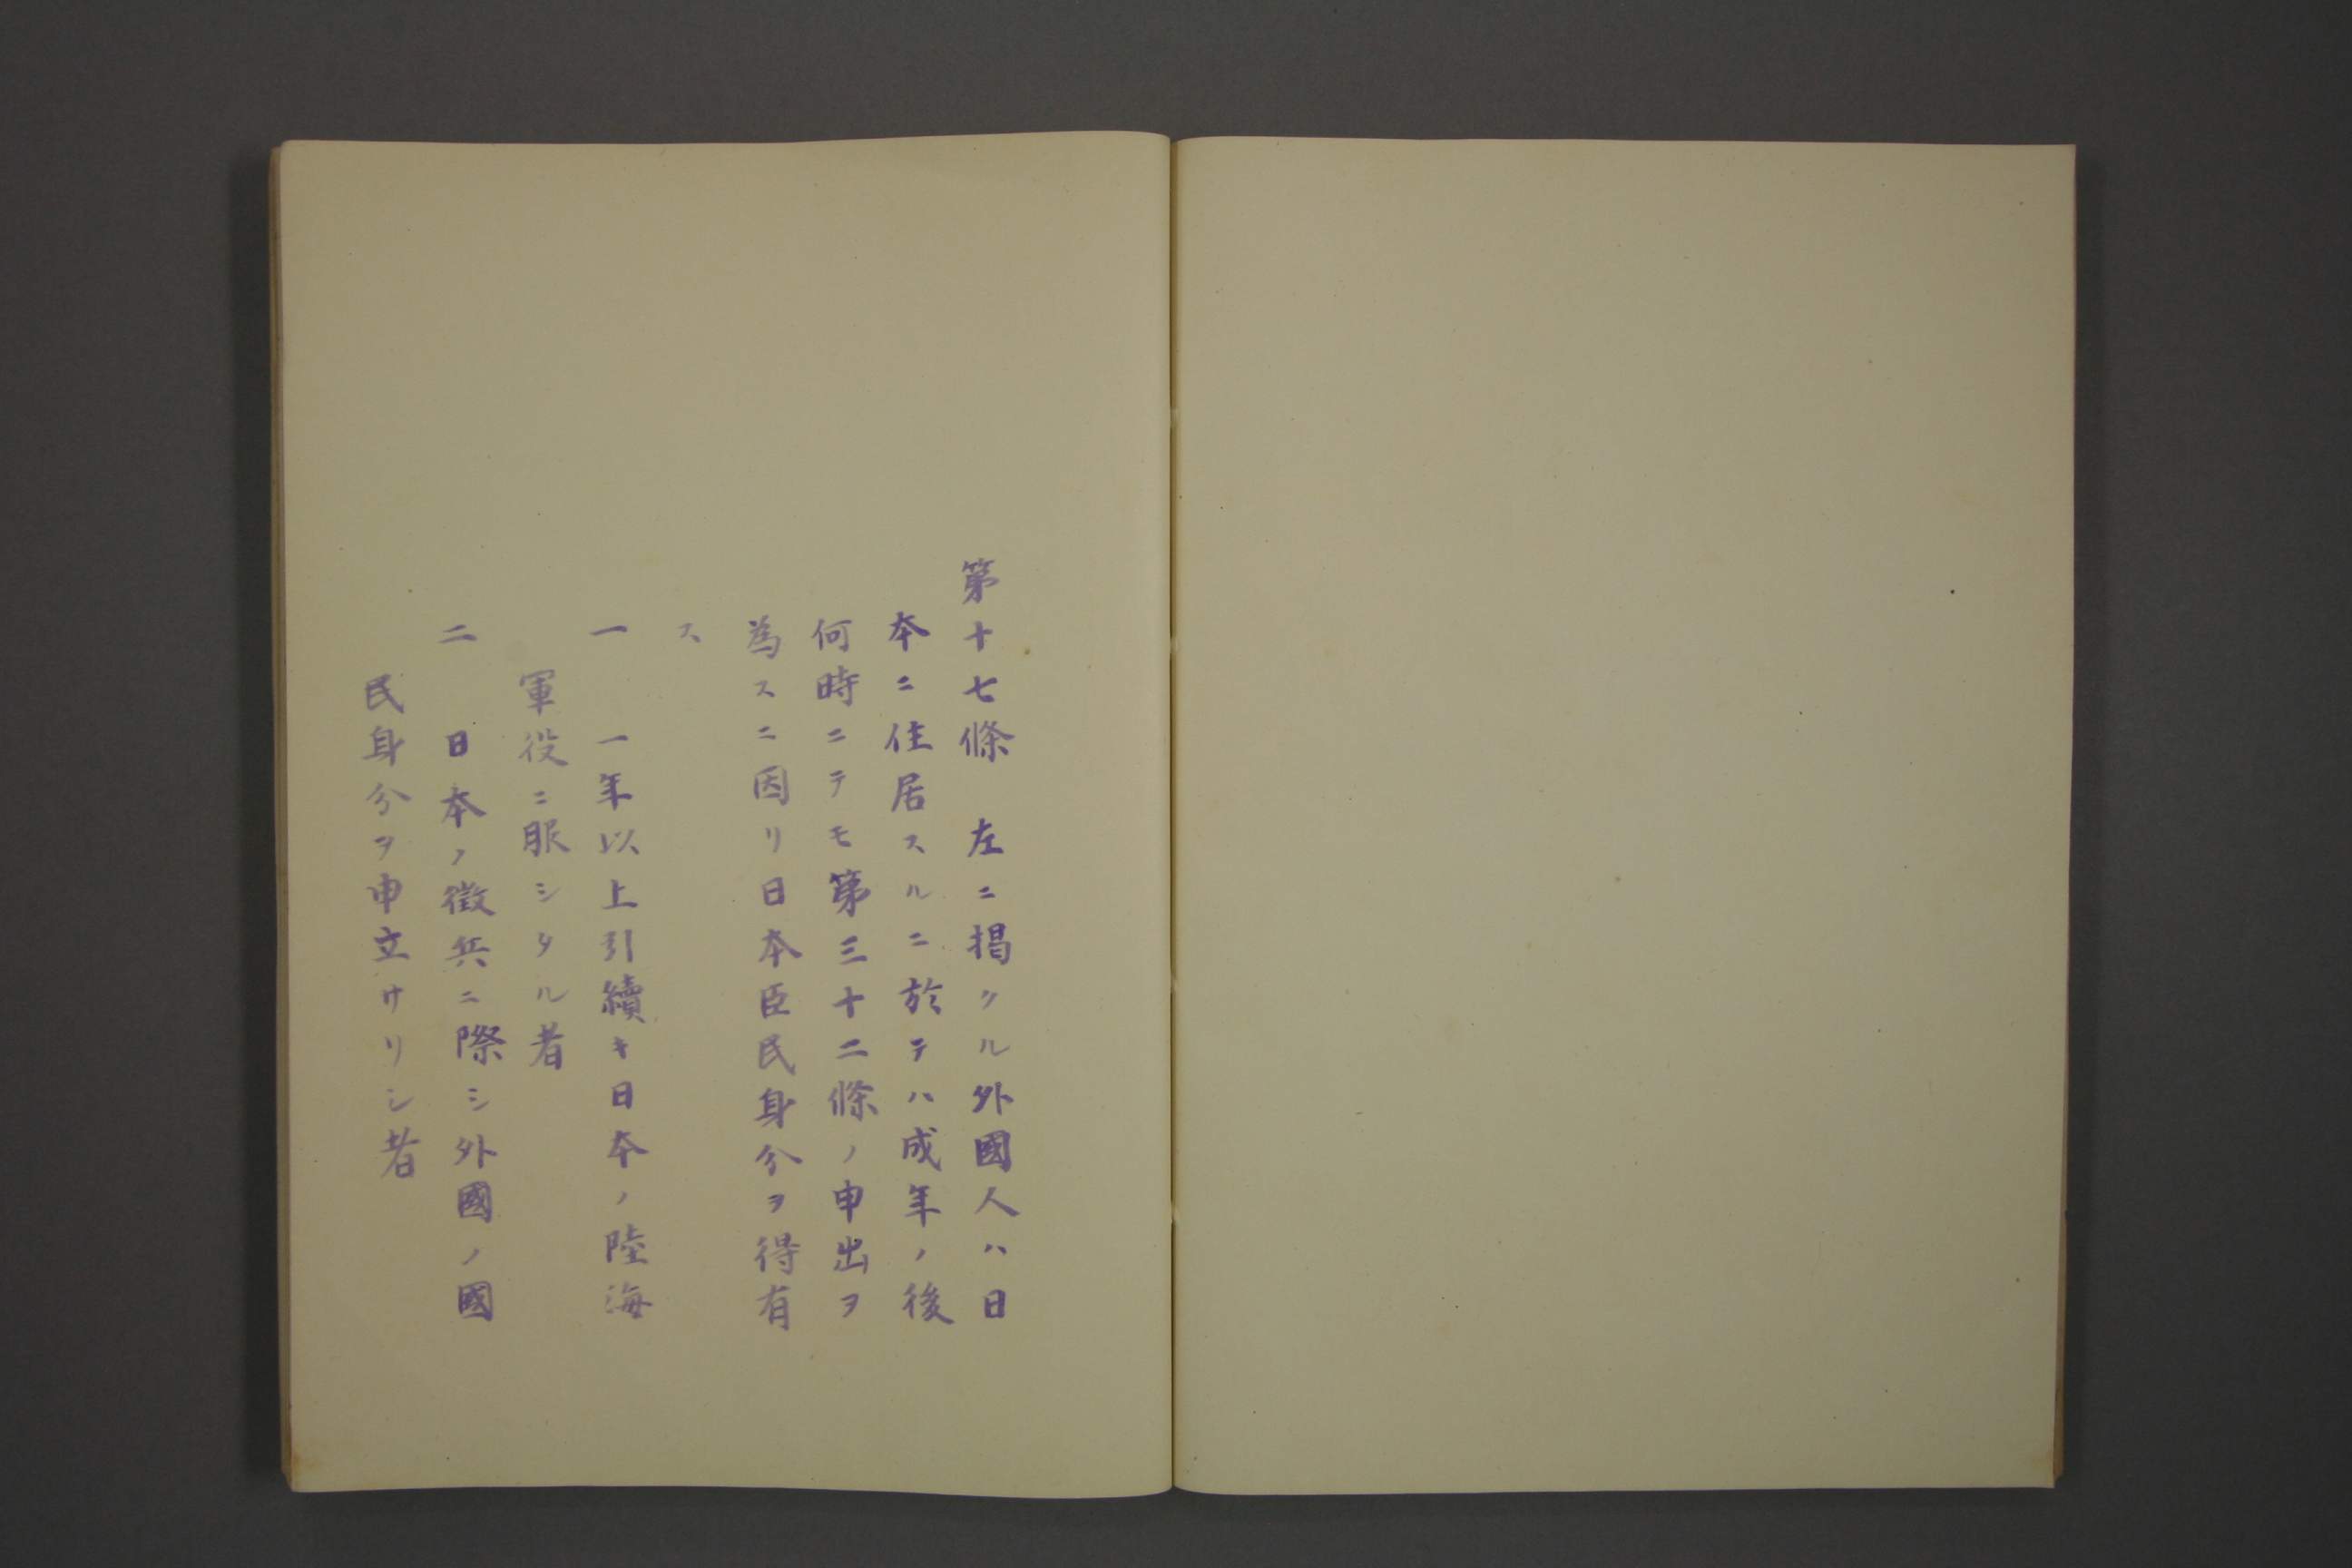 第十七條　左ニ掲クル外國人ハ日
本ニ住居スルニ於テハ成年ノ後
何時ニテモ第三十二條ノ申出ヲ
為スニ因リ日本臣民身分ヲ得有
ス
一　一年以上引續キ日本ノ陸海
軍役ニ服シタル者
二　日本ノ徴兵ニ際シ外國ノ國
民身分ヲ申立サリシ者